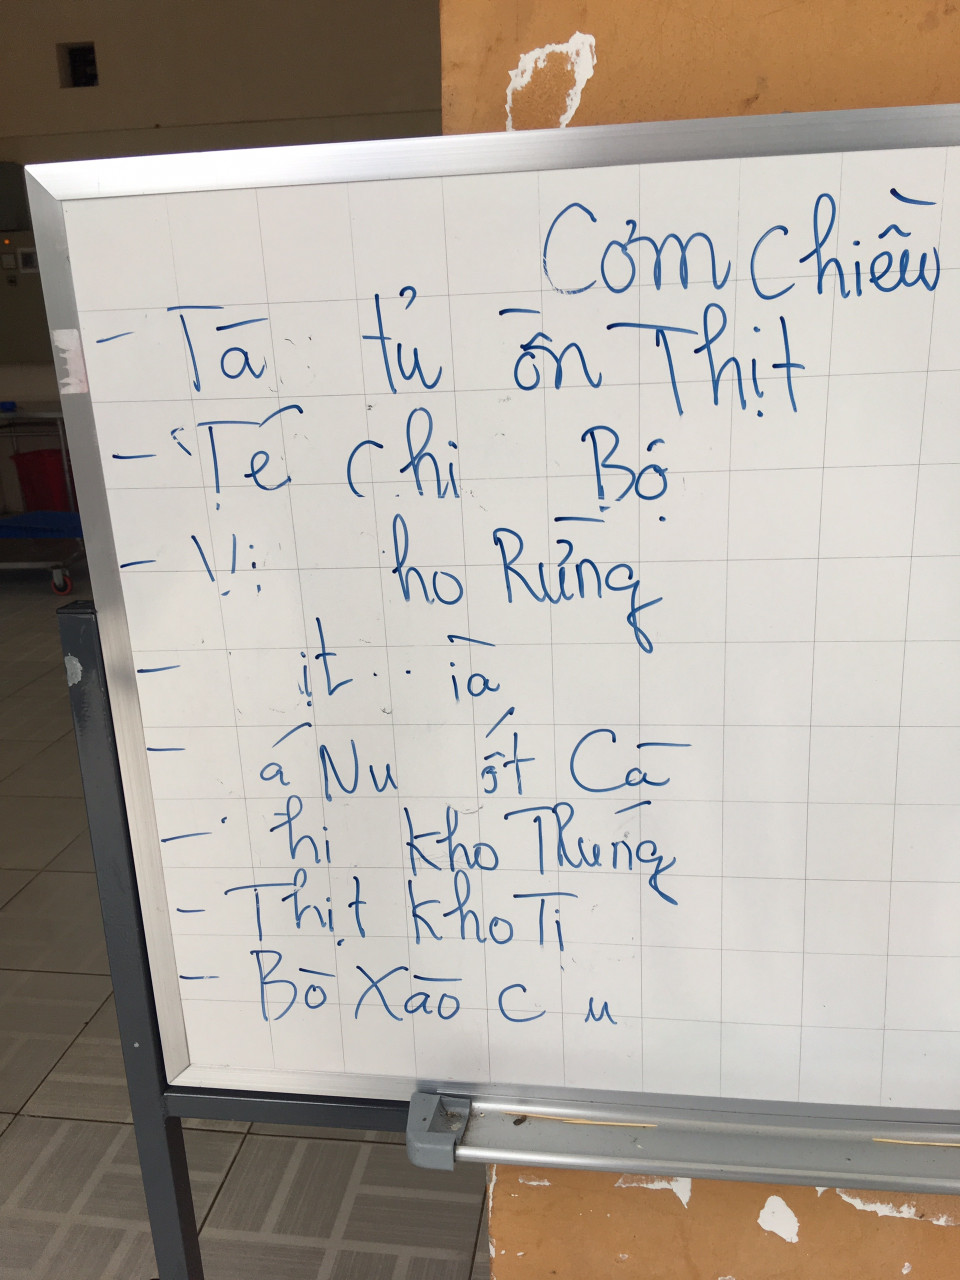 Cơm Chiều
- Tà tủ ồn Thịt
- Té chi Bộ
- Vị ho Rừng
- ịt ià
- á Nu ốt Cà
- hi kho Trứng
- Thịt kho Ti
- Bò Xào C u